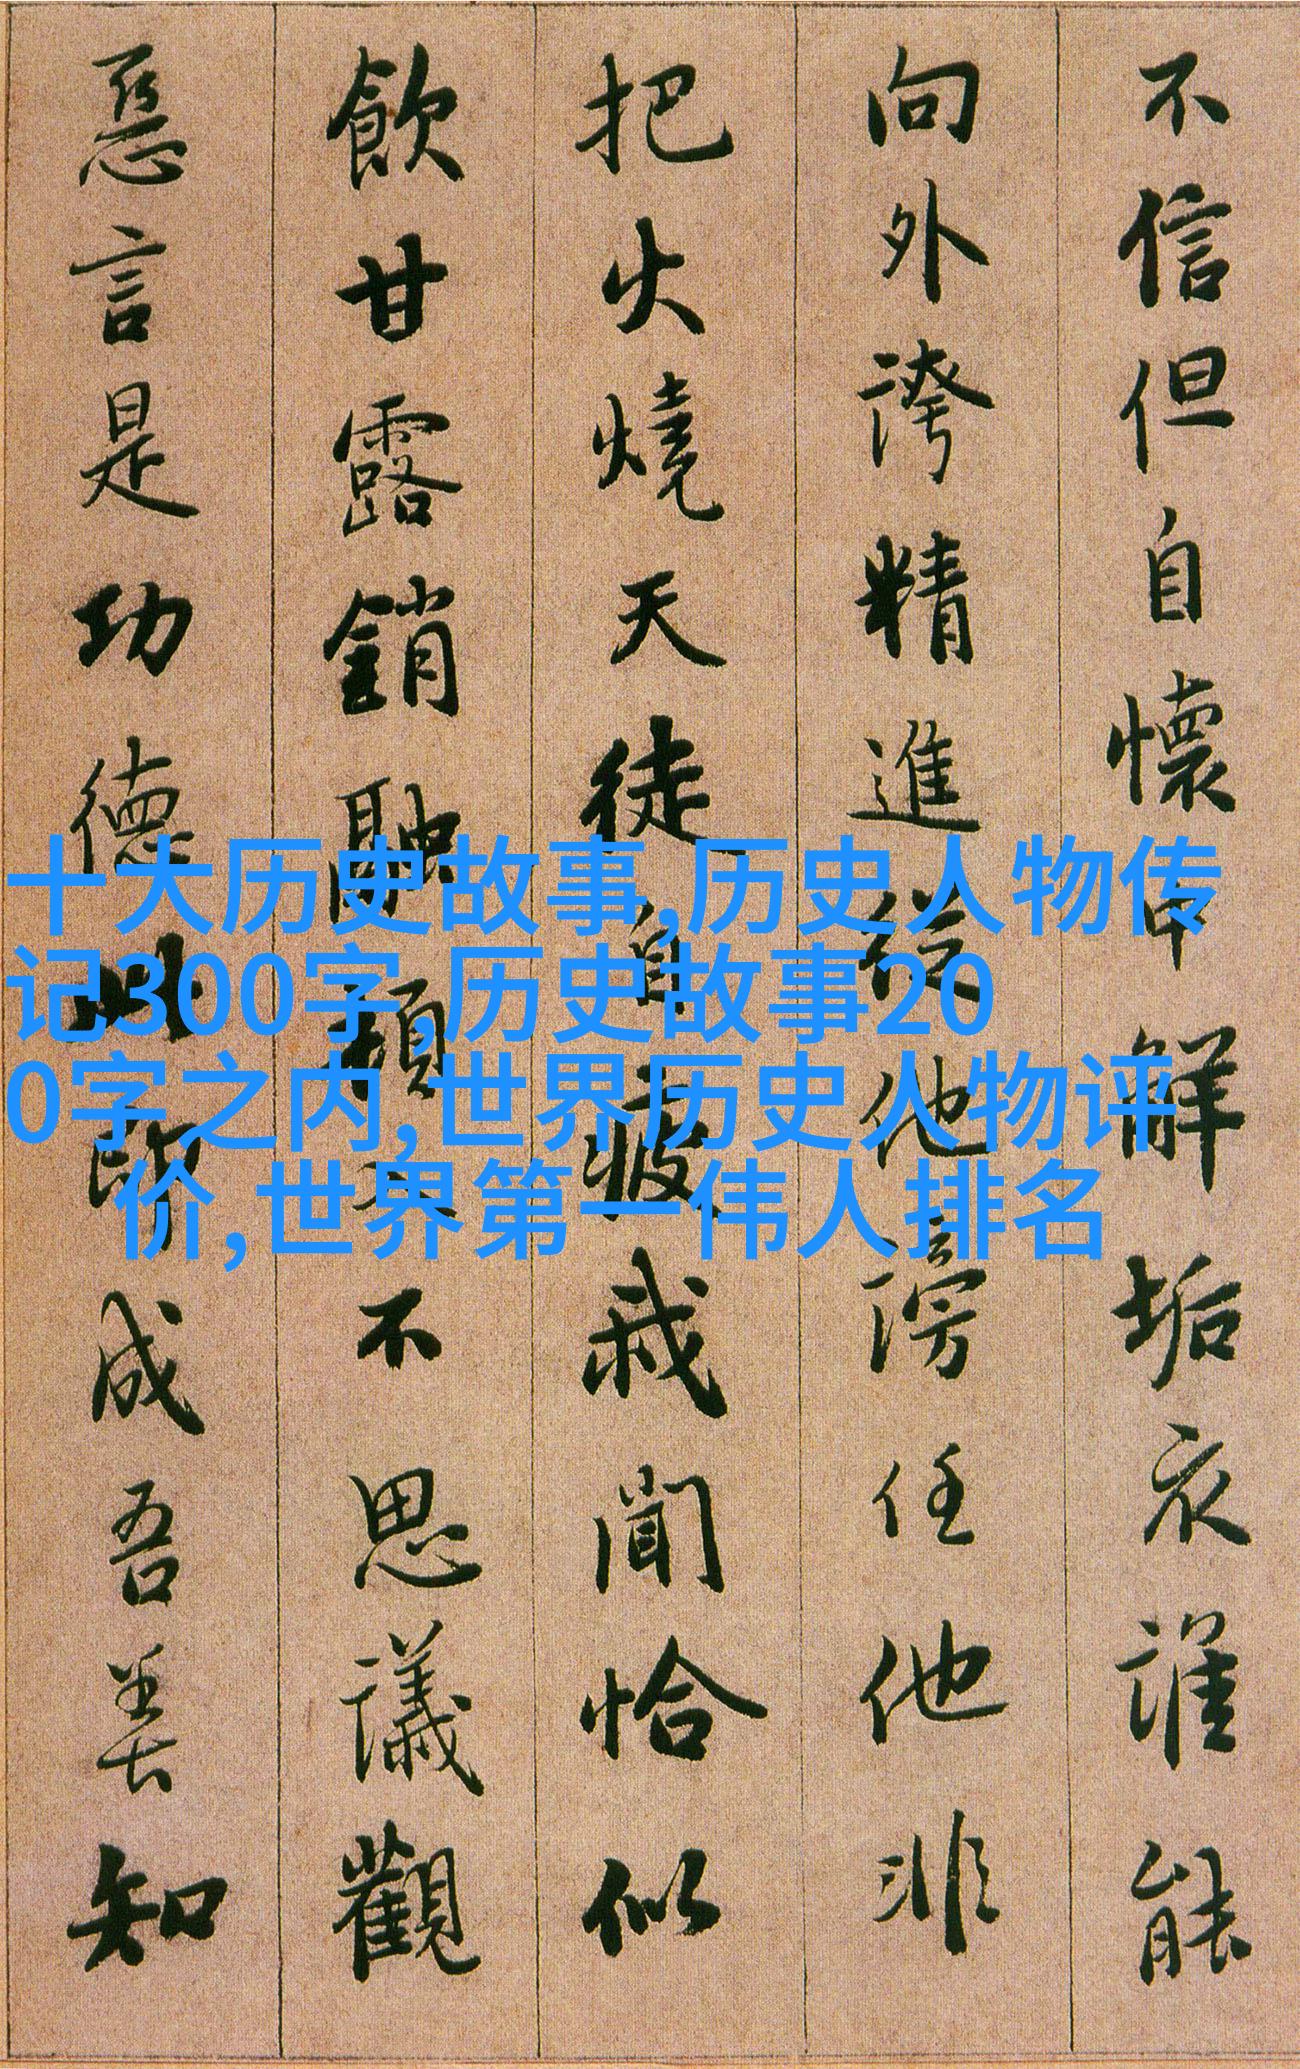 不信但自懷中解垢衣誰能
向外誇精進從他謗任他非
把火燒天徒自疲我聞恰似
飲甘露銷融頓入不思議觀
惡言是功德此即成吾善知
十大历史故事,历史人物传
记300字,历史故事20
0字之内,世界历史人物评
价,世界第一伟人排名